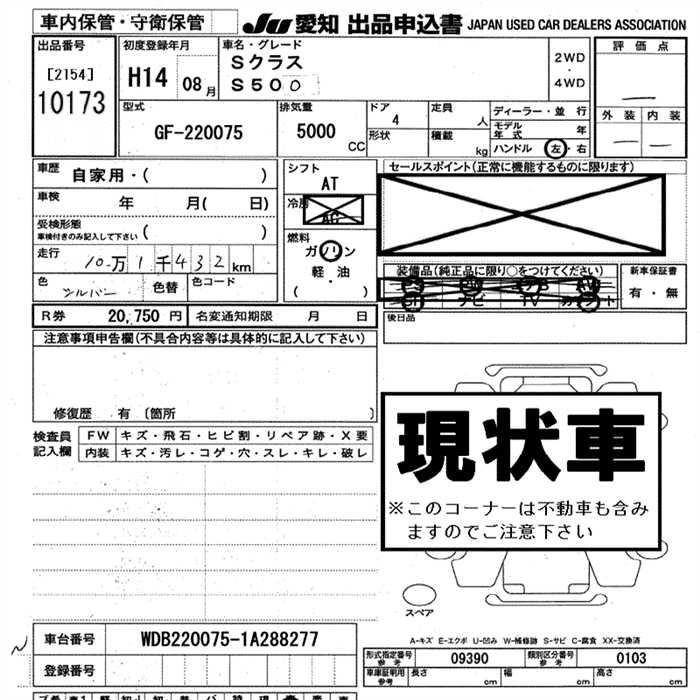 車内保管・守衛保管
JU 愛知 出品申込書 JAPAN USED CAR DEALERS ASSOCIATION
出品番号
[2154]
10173
初度登録年月
H14 08月
車名・グレード
Sクラス
S500
2WD
・
4WD
評価点
外装 内装
型式
GF-220075
排気量
5000
CC
ドア
4
形状
定員
人
積載
kg
ディーラー・並行
モデル年式 年
ハンドル 左・右
車歴
自家用・( )
車検
年 月( 日)
受検形態
車検付きのみ記入して下さい ( )
走行
10万1千432km
色
シルバー
色替
色コード
シフト
AT
冷房
AC
燃料
ガソリン
軽・油
( )
セールスポイント(正常に機能するものに限ります)
装備品(純正品に限り○をつけてください)
ナビ TV
新車保証書
有・無
後日品
R券 20,750 円
名変通知期限 月 日
注意事項申告欄(不具合内容等は具体的に記入して下さい)
修復歴 有 〔箇所 〕
検査員記入欄
FW キズ・飛石・ヒビ割・リペア跡・X要
内装 キズ・汚レ・コゲ・穴・スレ・キレ・破レ
現状車
※このコーナーは不動車も含み
ますのでご注意下さい
スペア
A-キズ E-エクボ U-凹み W-補修跡 S-サビ C-腐食 XX-交換済
車台番号 WDB220075-1A288277
登録番号
型式指定番号 参考 09390
類別区分番号 参考 0103
車庫証明用 参考 長さ cm 幅 cm 高さ cm